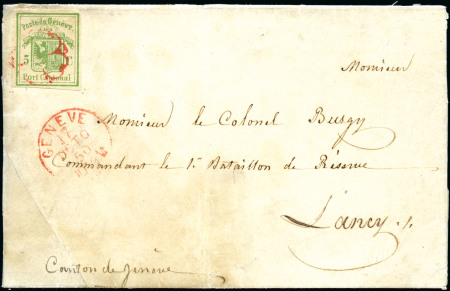 Poste de Genève
5 C
Port Cantonal
Monsieur
GENEVE
Monsieur le Colonel
Commandant le 1r Bataillon de Réserve
Lancy
Canton de Genève